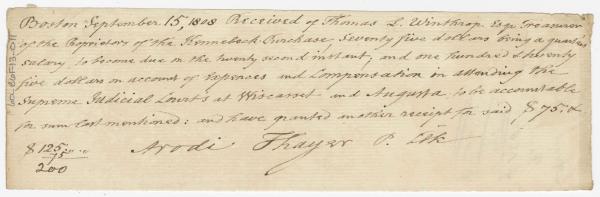 Boston September 15, 1808 Received of Thomas L. Winthrop Esqr. Treasurer
of the Proprietors of the Kennebeck Purchase, Seventy five dollars being a quarters
salary to become due on the twenty second instant, and one hundred & twenty
five dollars on account of Expences and Compensation in attending the
Supreme Judicial Courts at Wiscasset and Augusta to be accountable
for sum last mentioned: and have granted another receipt for said $75. &
$125
75
200
Arodi Thayer P. Clk